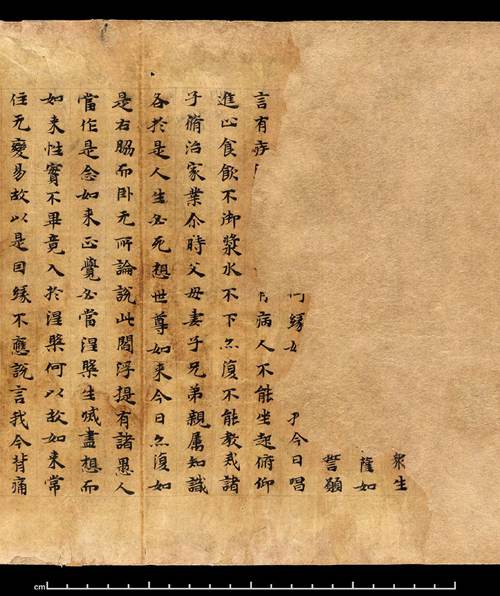 衆生
薩如
誓願
何緣今日唱
言有病人不能坐起俯仰
進止食飲不御漿水不下亦復不能教戒諸
子脩治家業尒時父母妻子兄弟親属知識
各於是人生必死想世尊如来今日亦復如
是右脇而卧无所論説此閻浮提有諸愚人
當作是念如来正覺必當涅槃生滅盡想而
如来性實不畢竟入於涅槃何以故如来常
住无變易故以是因緣不應説言我今背痛
cm